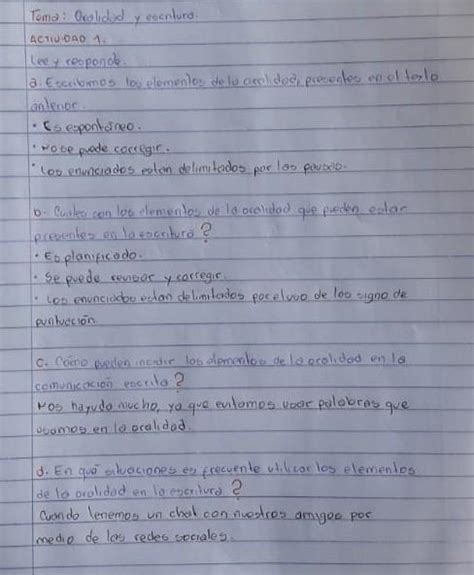 Tema: Oralidad y escritura.
ACTIVIDAD 1.
Lee y responde.
a. Escribimos los elementos de la oralidad, presentes en el texto
anterior.
• Es espontáneo.
• No se puede corregir.
• Los enunciados estan delimitados por las pausas.
b. Cuáles son los elementos de la oralidad que pueden estar
presentes en la escritura?
• Es planificado.
• Se puede revisar y corregir.
• Los enunciados estan delimitados por el uso de los signo de
puntuación.
c. Cómo pueden incidir los elementos de la oralidad en la
comunicación escrita?
Nos hayuda mucho, ya que evitamos usar palabras que
usamos en la oralidad.
d. En qué situaciones es frecuente utilizar los elementos
de la oralidad en la escritura?
Cuando tenemos un chat con nuestros amigos por
medio de las redes sociales.